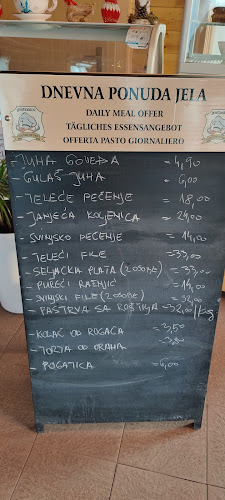 DNEVNA PONUDA JELA
DAILY MEAL OFFER
TÄGLICHES ESSENSANGEBOT
OFFERTA PASTO GIORNALIERO
- JUHA GOVEĐA = 4,90
- GULAŠ JUHA = 6,00
- TELEĆE PEČENJE = 18,00
- JANJEĆA KOLJENICA = 24,00
- SVINJSKO PEČENJE = 14,00
- TELEĆI FILE = 33,00
- SELJAČKA PLATA (2 OSOBE) = 33,00
- PUREĆI RAŽNJIĆ = 14,00
- SVINJSKI FILE (2 OSOBE) = 32,00
- PASTRVA SA ROŠTILJA = 32,00 1/kg
- KOLAČ OD ROGAČA = 3,50
- TORTA OD ORAHA = 3,80
- POGAČICA = 6,00